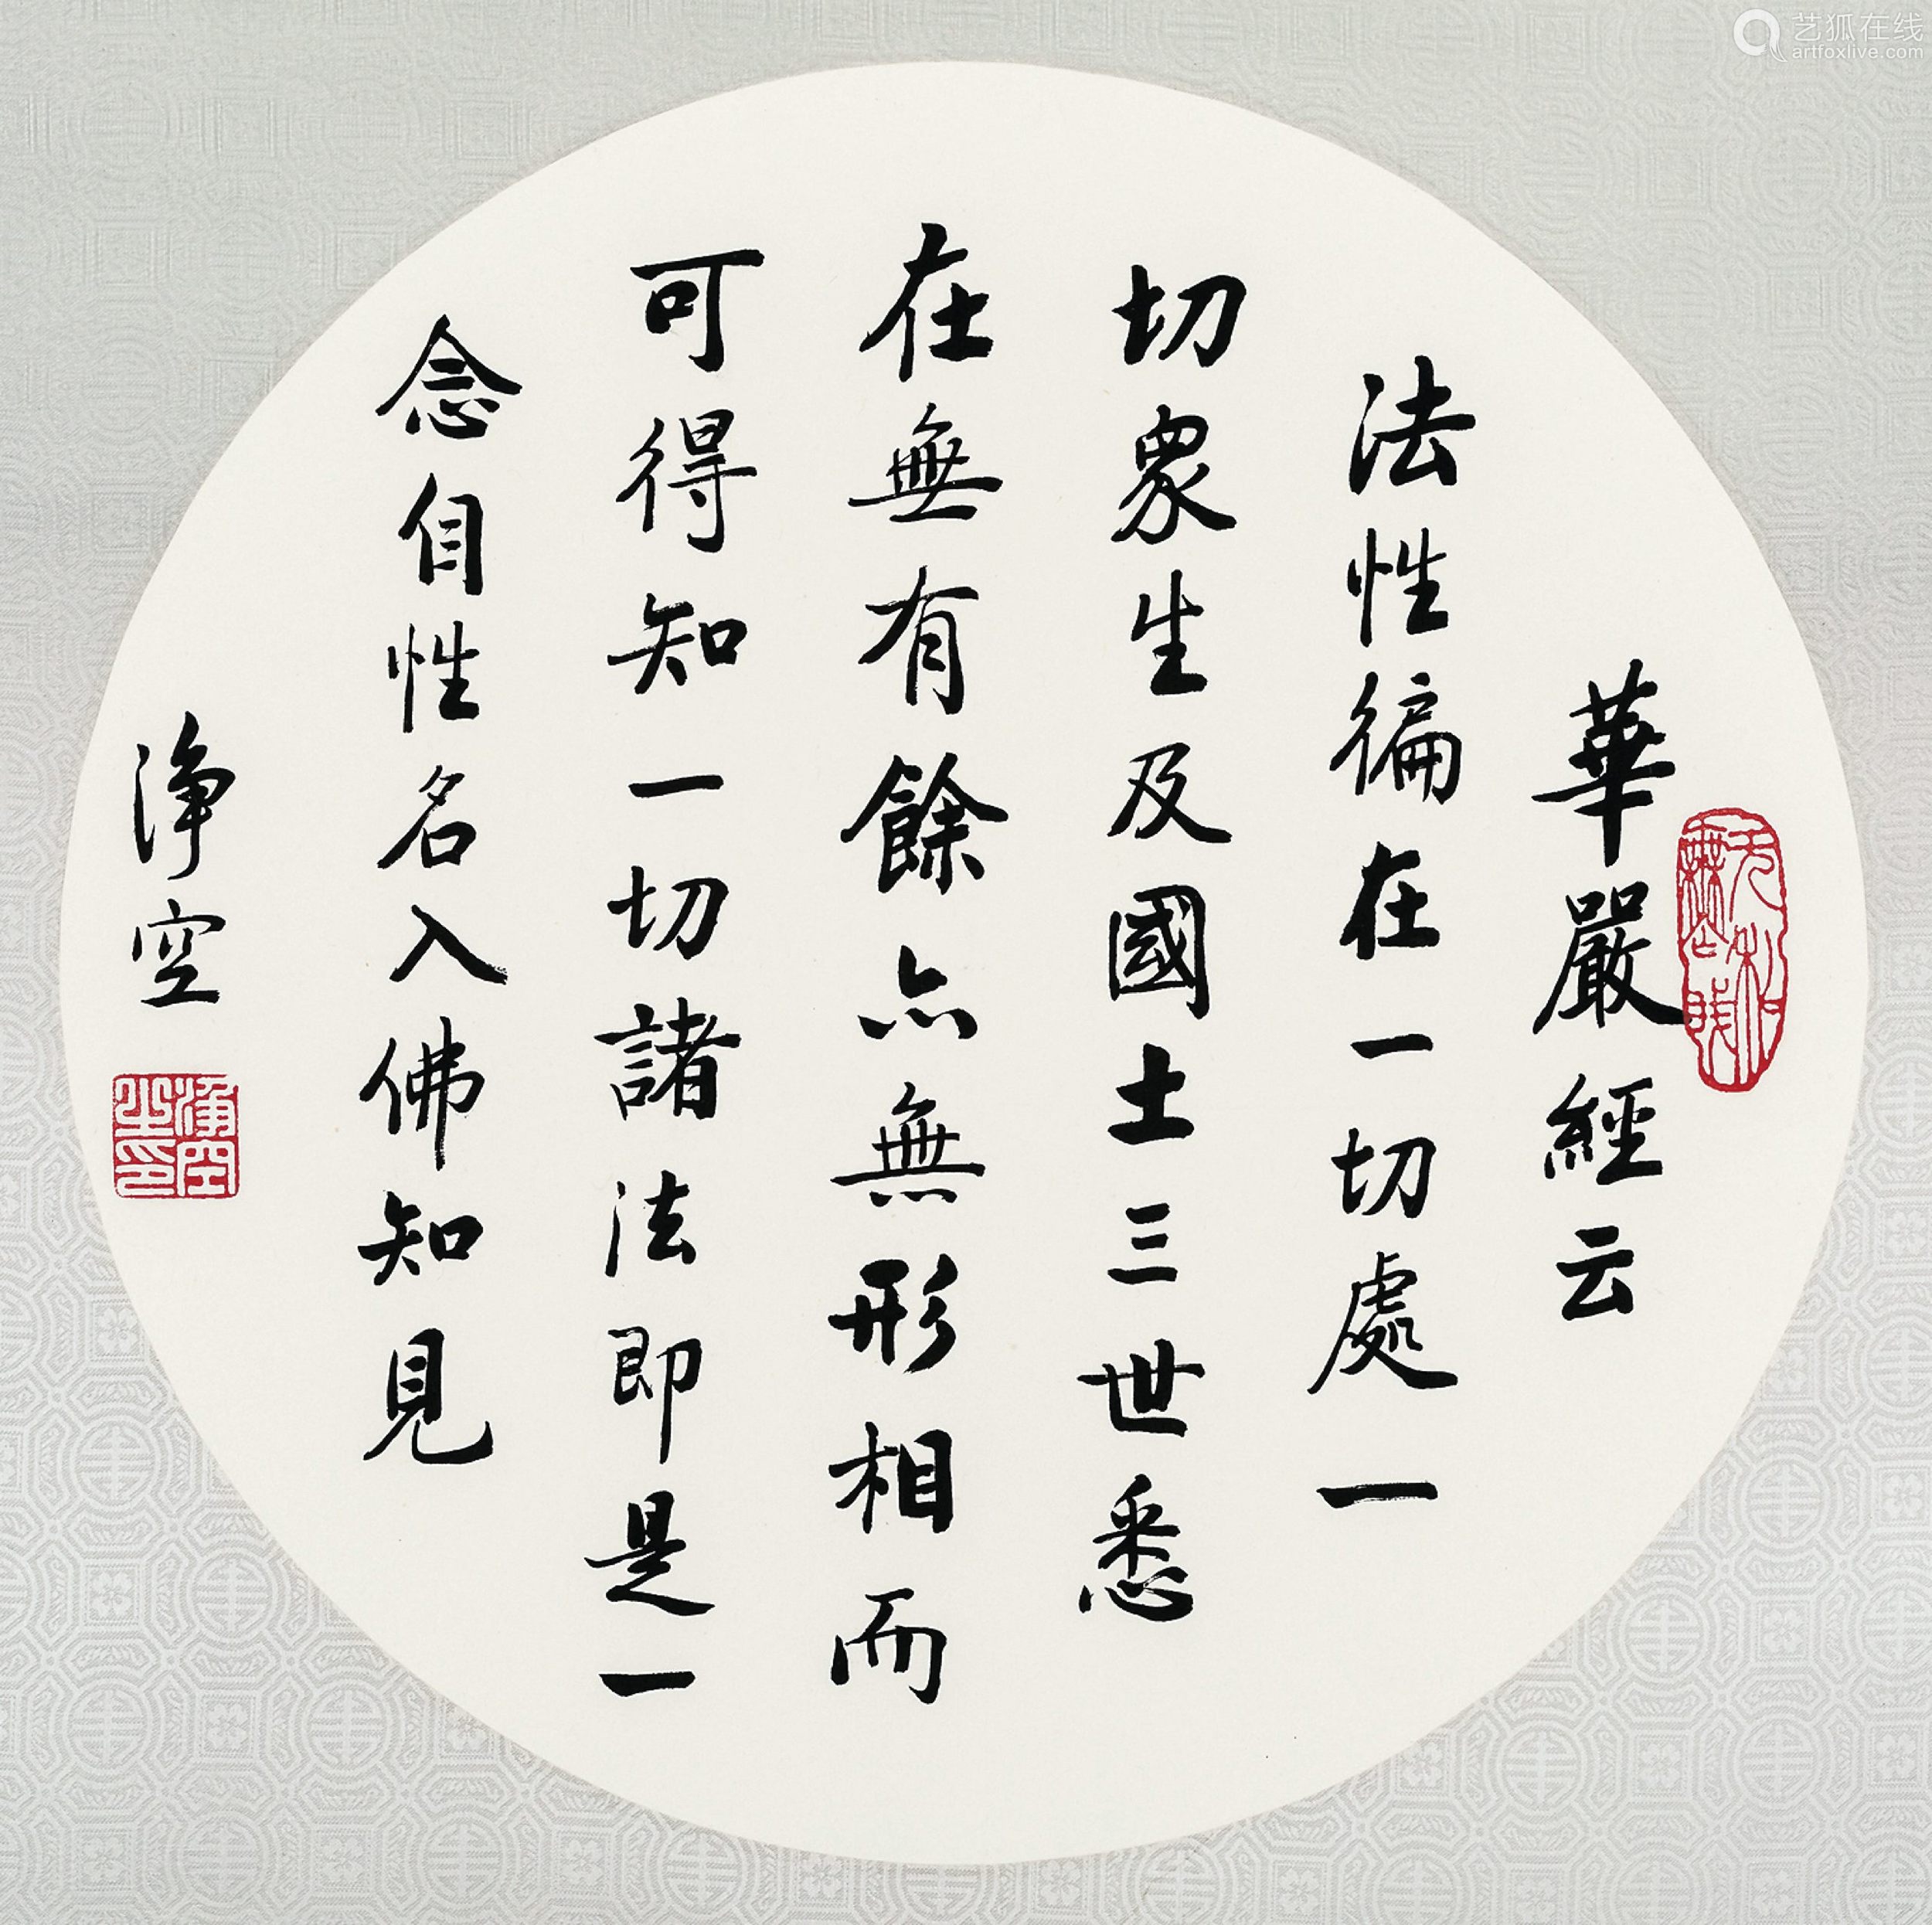 華嚴經云
法性徧在一切處一
切眾生及國土三世悉
在無有餘亦無形相而
可得知一切諸法即是一
念自性名入佛知見
淨空
淨空之印
艺狐在线
artfoxlive.com